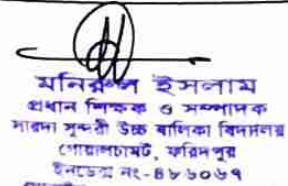 মনিরুল ইসলাম
প্রধান শিক্ষক ও সম্পাদক
সারদা সুন্দরী উচ্চ বালিকা বিদ্যালয়
গোয়ালচামট, ফরিদপুর
ইনডেক্স নং-৪৮৬০৬৭